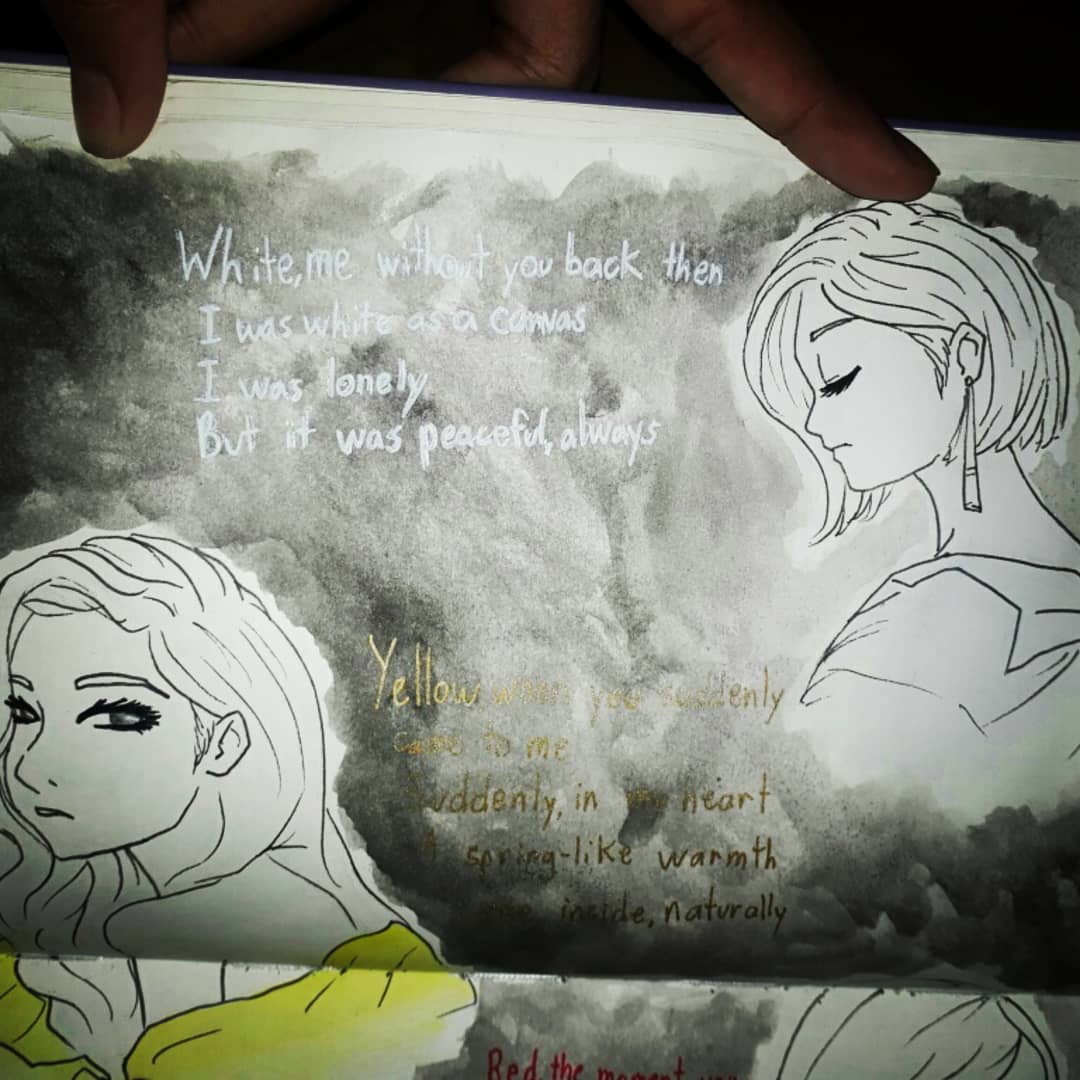 White, me without you back then
I was white as a canvas
I was lonely
But it was peaceful, always
Yellow when you suddenly
came to me
Suddenly, in my heart
A spring-like warmth
inside, naturally
Red, the moment you